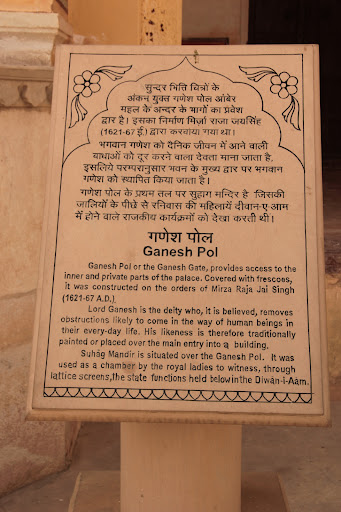 सुन्दर भित्ति चित्रों के
अंकन युक्त गणेश पोल आंबेर
महल के अन्दर के भागों का प्रवेश
द्वार है। इसका निर्माण मिर्ज़ा राजा जयसिंह
(1621-67 ई.) द्वारा करवाया गया था।
भगवान गणेश को दैनिक जीवन में आने वाली
बाधाओं को दूर करने वाला देवता माना जाता है,
इसलिये परम्परानुसार भवन के मुख्य द्वार पर भगवान
गणेश को स्थापित किया जाता है।
गणेश पोल के प्रथम तल पर सुहाग मन्दिर है जिसकी
जालियों के पीछे से रनिवास की महिलायें दीवान-ए-आम
में होने वाले राजकीय कार्यक्रमों को देखा करती थी।
गणेश पोल
Ganesh Pol
Ganesh Pol or the Ganesh Gate, provides access to the
inner and private parts of the palace. Covered with frescoes,
it was constructed on the orders of Mirza Raja Jai Singh
(1621-67 A.D.)
Lord Ganesh is the deity who, it is believed, removes
obstructions likely to come in the way of human beings in
their every-day life. His likeness is therefore traditionally
painted or placed over the main entry into a building.
Suhag Mandir is situated over the Ganesh Pol. It was
used as a chamber by the royal ladies to witness, through
lattice screens, the state functions held below in the Diwan-i-Aam.